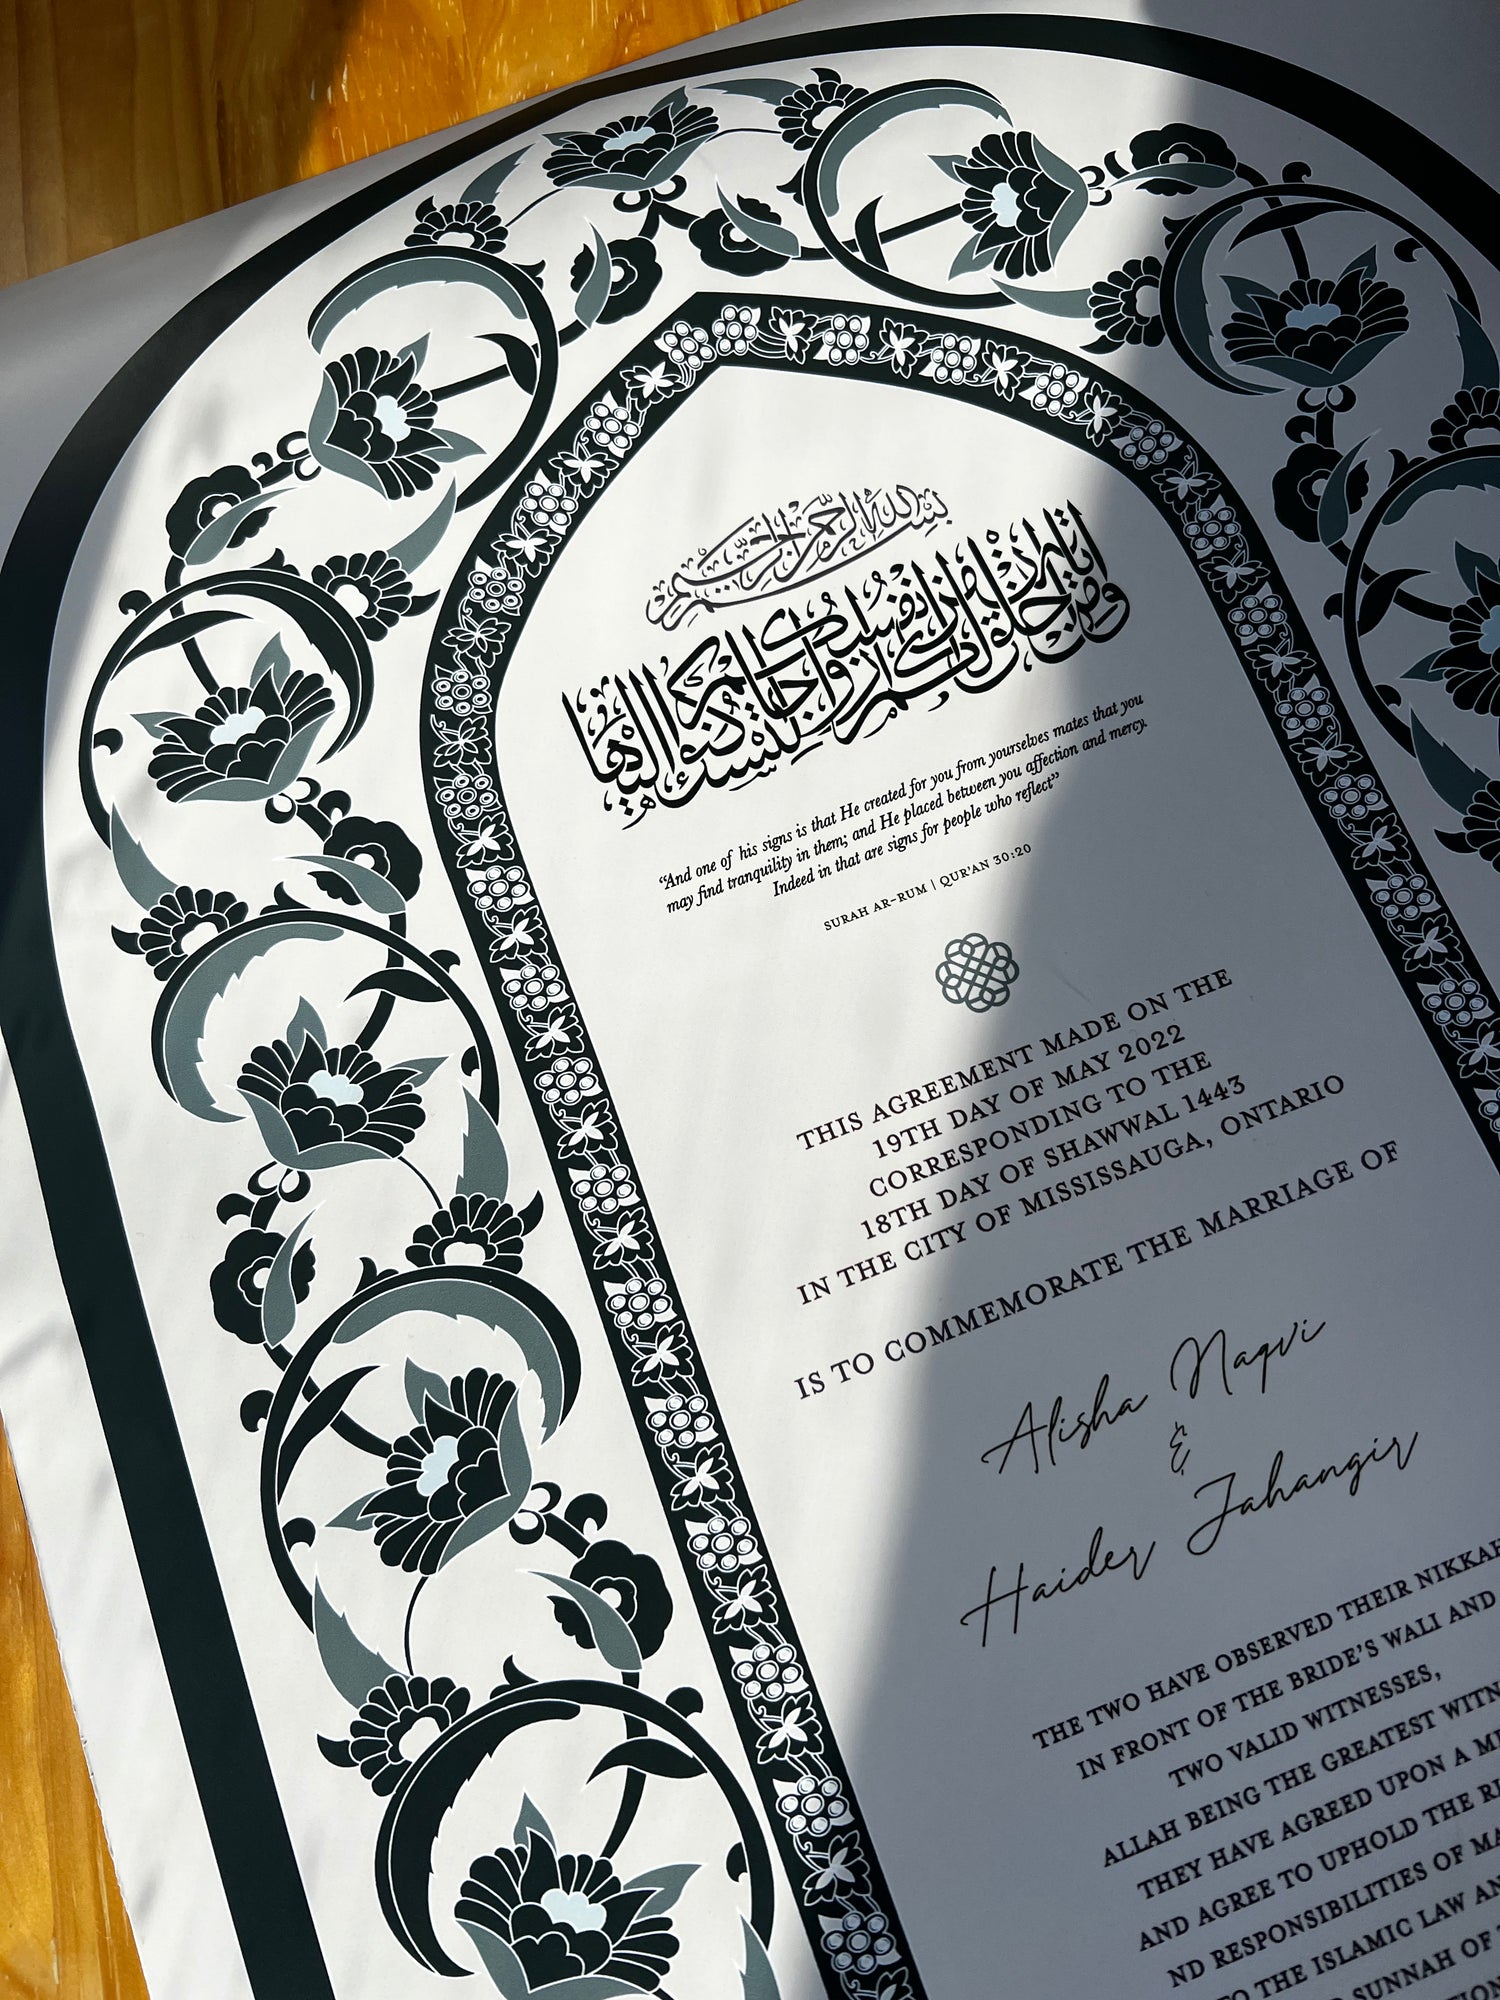 بسم الله الرحمن الرحيم
ومن ايته ان خلق لكم من انفسكم ازواجا لتسكنوا اليها
“And one of his signs is that He created for you from yourselves mates that you
may find tranquility in them; and He placed between you affection and mercy.
Indeed in that are signs for people who reflect”
SURAH AR-RUM | QUR'AN 30:20
THIS AGREEMENT MADE ON THE
19TH DAY OF MAY 2022
CORRESPONDING TO THE
18TH DAY OF SHAWWAL 1443
IN THE CITY OF MISSISSAUGA, ONTARIO
IS TO COMMEMORATE THE MARRIAGE OF
Alisha Naqvi
&
Haider Jahangir
THE TWO HAVE OBSERVED THEIR NIKKAH
IN FRONT OF THE BRIDE'S WALI AND
TWO VALID WITNESSES,
ALLAH BEING THE GREATEST WITN
THEY HAVE AGREED UPON A M
AND AGREE TO UPHOLD THE RI
ND RESPONSIBILITIES OF MA
TO THE ISLAMIC LAW AN
SUNNAH OF